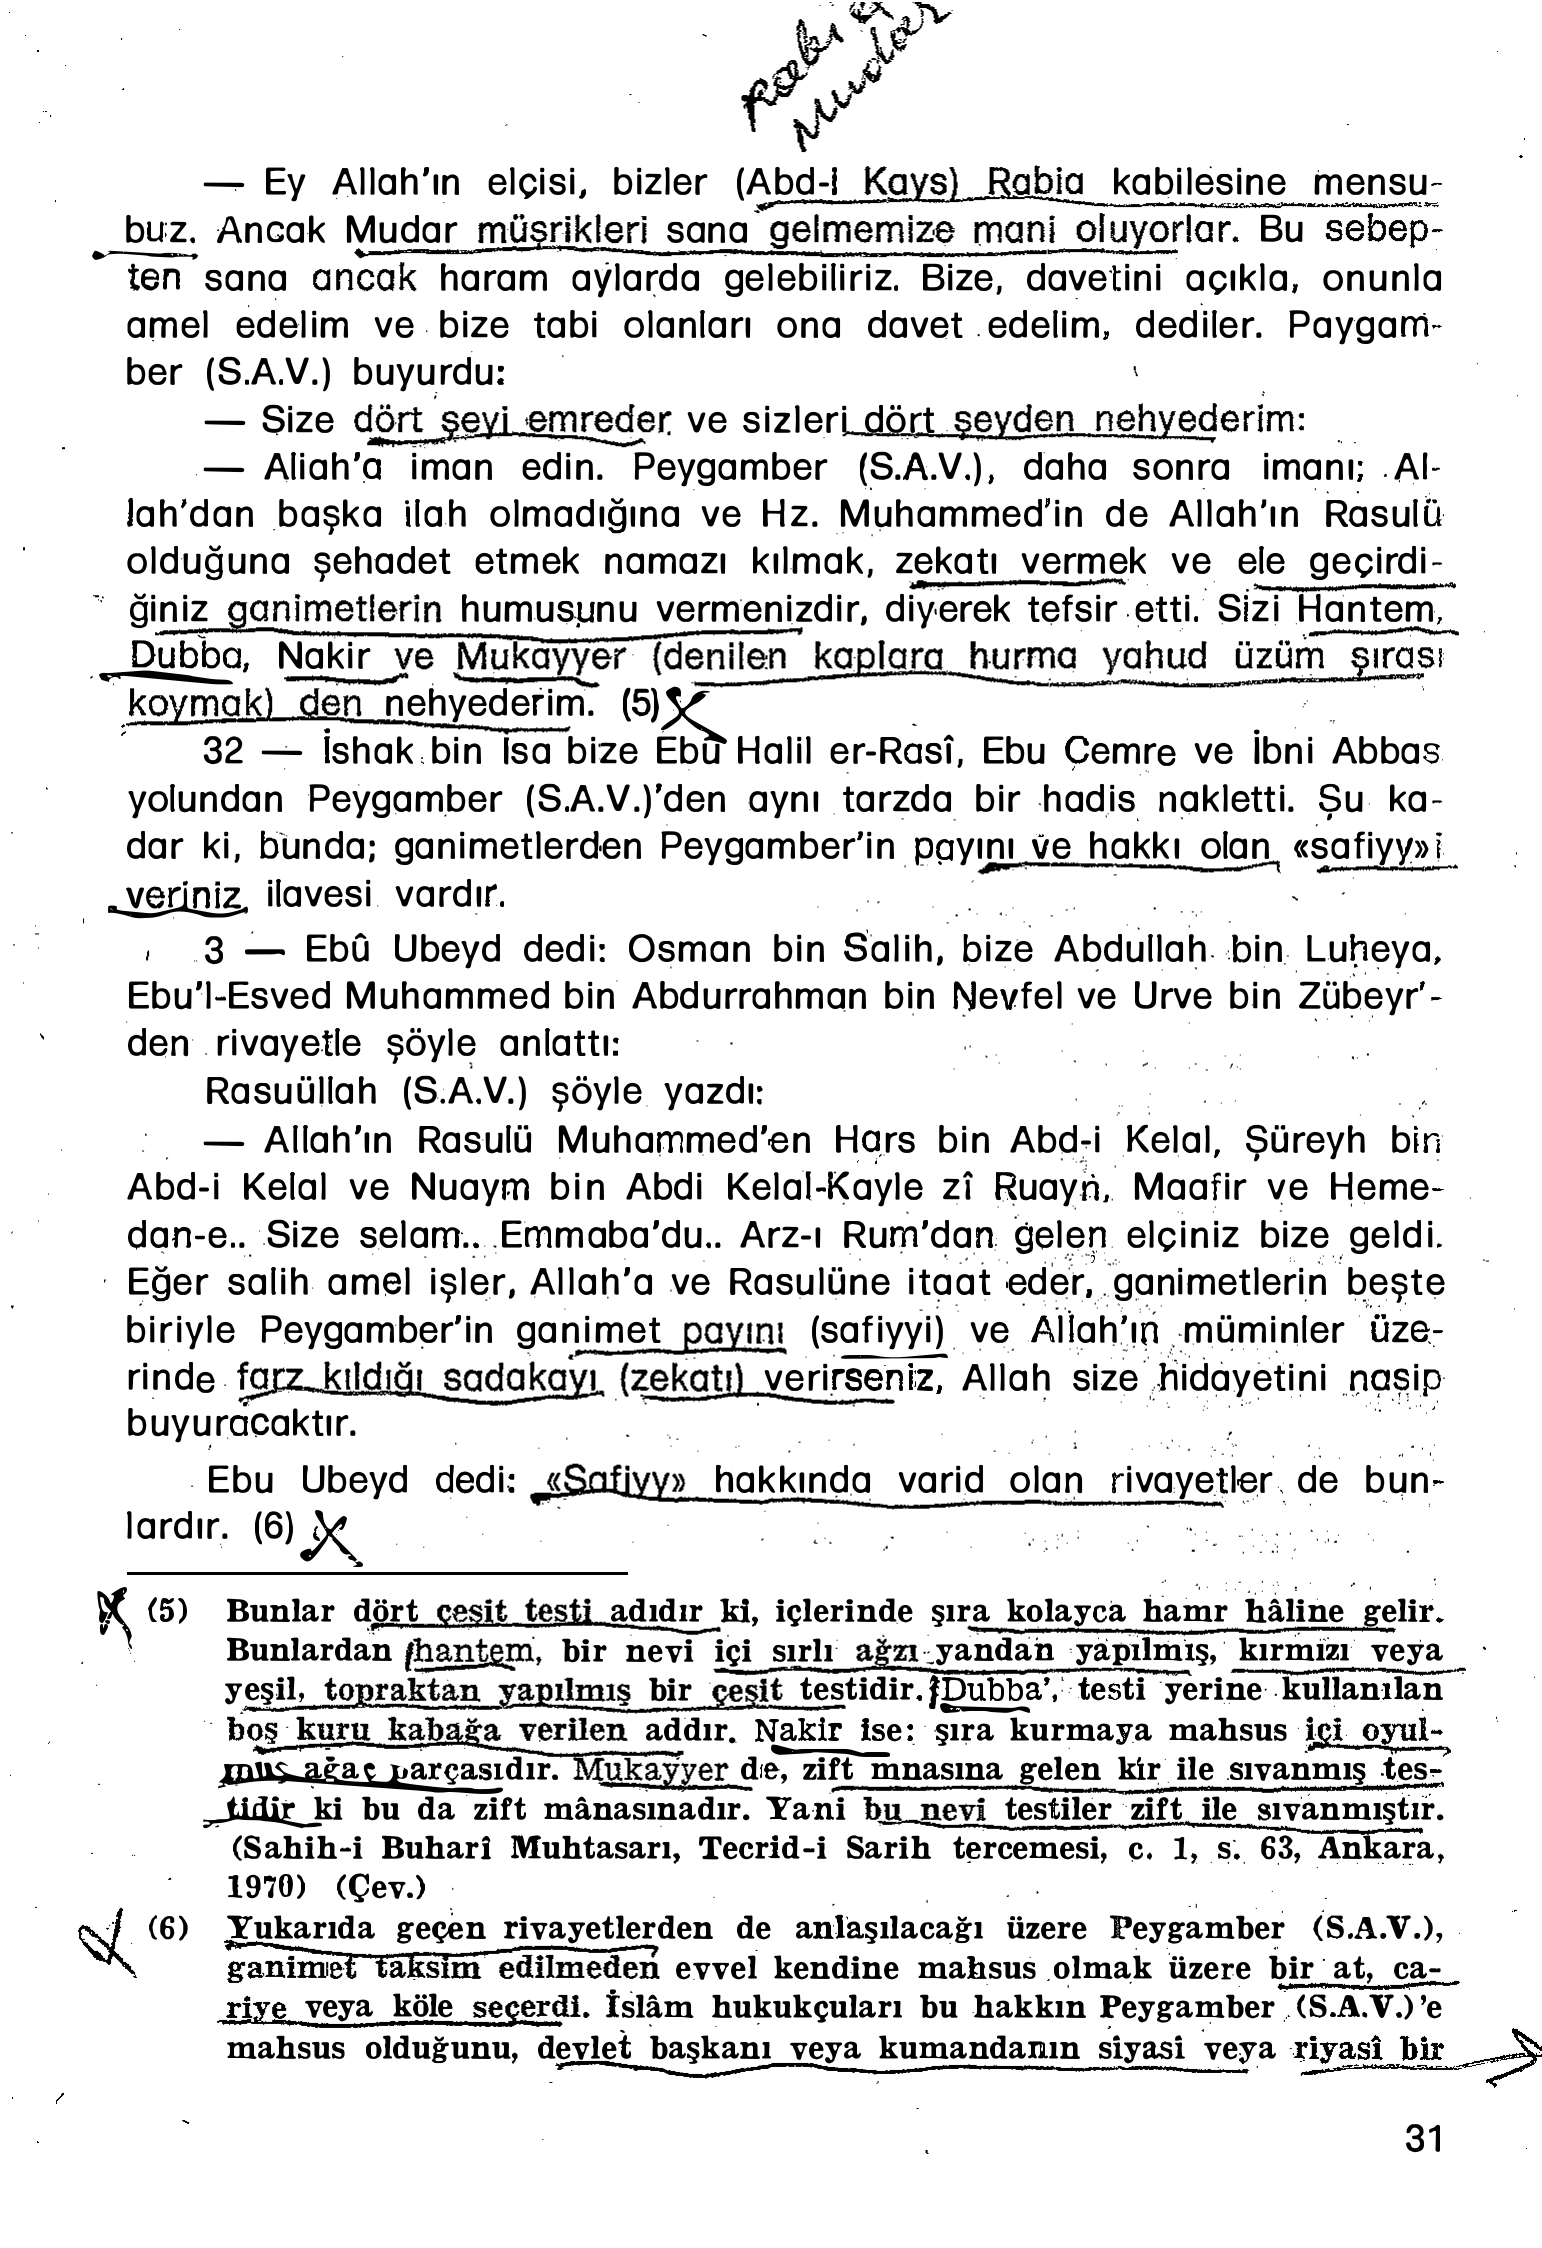 Rabia
Mudar
— Ey Allah'ın elçisi, bizler (Abd-i Kays) Rabia kabilesine mensu-
buz. Ancak Mudar müşrikleri sana gelmemize mani oluyorlar. Bu sebep-
ten sana ancak haram aylarda gelebiliriz. Bize, davetini açıkla, onunla
amel edelim ve bize tabi olanları ona davet edelim, dediler. Paygam-
ber (S.A.V.) buyurdu:
— Size dört şeyi emreder ve sizleri dört şeyden nehyederim:
— Allah'a iman edin. Peygamber (S.A.V.), daha sonra imanı; Al-
lah'dan başka ilah olmadığına ve Hz. Muhammed'in de Allah'ın Rasulü
olduğuna şehadet etmek namazı kılmak, zekatı vermek ve ele geçirdi-
ğiniz ganimetlerin humusunu vermenizdir, diyerek tefsir etti. Sizi Hantem,
Dubba, Nakir ve Mukayyer (denilen kaplara hurma yahud üzüm şırası
koymak) den nehyederim. (5)
32 — İshak bin İsa bize Ebû Halil er-Rasî, Ebu Cemre ve İbni Abbas
yolundan Peygamber (S.A.V.)'den aynı tarzda bir hadis nakletti. Şu ka-
dar ki, bunda; ganimetlerden Peygamber'in payını ve hakkı olan «safiyy»i
veriniz ilavesi vardır.
3 — Ebû Ubeyd dedi: Osman bin Salih, bize Abdullah bin Luheya,
Ebu'l-Esved Muhammed bin Abdurrahman bin Nevfel ve Urve bin Zübeyr'-
den rivayetle şöyle anlattı:
Rasuüllah (S.A.V.) şöyle yazdı:
— Allah'ın Rasulü Muhammed'en Hars bin Abd-i Kelal, Şüreyh bin
Abd-i Kelal ve Nuaym bin Abdi Kelal-Kayle zî Ruayn, Maafir ve Heme-
dan-e.. Size selam.. Emmaba'du.. Arz-ı Rum'dan gelen elçiniz bize geldi.
Eğer salih amel işler, Allah'a ve Rasulüne itaat eder, ganimetlerin beşte
biriyle Peygamber'in ganimet payını (safiyyi) ve Allah'ın müminler üze-
rinde farz kıldığı sadakayı (zekatı) verirseniz, Allah size hidayetini nasip
buyuracaktır.
Ebu Ubeyd dedi: «Safiyy» hakkında varid olan rivayetler de bun-
lardır. (6)
(5) Bunlar dört çeşit testi adıdır ki, içlerinde şıra kolayca hamr hâline gelir.
Bunlardan hantem, bir nevi içi sırlı ağzı yandan yapılmış, kırmızı veya
yeşil, topraktan yapılmış bir çeşit testidir. Dubba', testi yerine kullanılan
boş kuru kabağa verilen addır. Nakir ise: şıra kurmaya mahsus içi oyul-
muş ağaç parçasıdır. Mukayyer de, zift mnasına gelen kir ile sıvanmış tes-
tidir ki bu da zift mânasınadır. Yani bu nevi testiler zift ile sıvanmıştır.
(Sahih-i Buharî Muhtasarı, Tecrid-i Sarih tercemesi, c. 1, s. 63, Ankara,
1970) (Çev.)
(6) Yukarıda geçen rivayetlerden de anlaşılacağı üzere Peygamber (S.A.V.),
ganimet taksim edilmeden evvel kendine mahsus olmak üzere bir at, ca-
riye veya köle seçerdi. İslâm hukukçuları bu hakkın Peygamber (S.A.V.)'e
mahsus olduğunu, devlet başkanı veya kumandanın siyasi veya riyasî bir
31